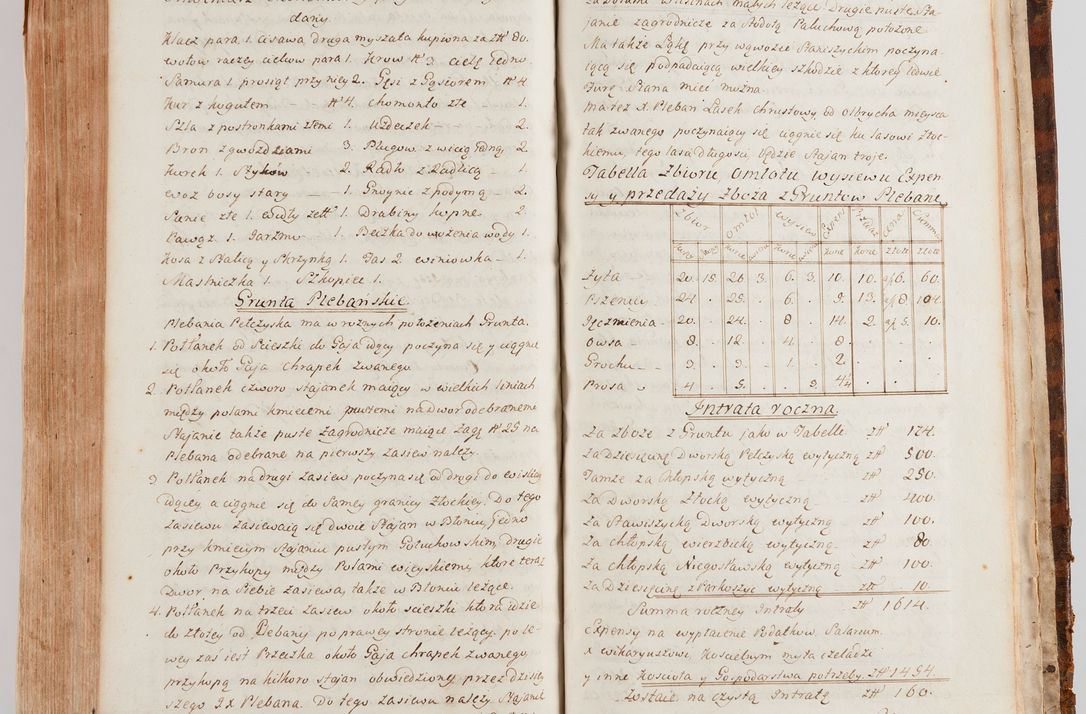 dany.
Klacz para 1. cisawa druga myszata kupiona za zł 80.
wołow raczey ciołkow para 1. Krow N 3 cielę jedno
Samura 1 prosiąt przy niey 2. Gęsi z Gąsiorem N 4
Kur z kogutem N 4. Chomonto złe - 1.
Szla z postronkami złemi 1. Uzdeczek - 2.
Bron z gwoździami 3. Plugow z wicią jedną 2.
Kurek 1. Szykow 2. Radło z Radlicą - 1.
woz bosy stary - 1. Gnoynic z podymą - 2.
Sanie złe 1. widły żelt 1. Drabiny kopne 2.
Pawąz 1. Jarzmo 1. Beczka do wożenia wody 1.
Kosa z Stalicą y Skrzynką 1. Fas 2. winiowka - 1.
Maslniczka 1. Szkopiec 1.
Grunta Plebańskie
Plebania Pełczyska ma w rożnych położeniach Grunta.
1. Połłanek od scieszki do Gaja idący poczyna się y ciągnie
się około Gaja chrapek zwanego
2. Połłanek czworo stajanek maiący w wielkich liniach
między polami kmiecemi pustemi na dwor odebranemi
Stajanie także puste zagrodnicze maiące zagą N 25 na
Plebana odebrane na pierwszy zasiew należy.
3 Połłanek na drugi zasiew poczyna się od drogi do wislicy
idącey, a ciągnie się do samey granicy Złockiey. Do tego
zasiewu zasiewaią się dwoie stajan w Błoniu, jedno
przy kmiecym stajaniu pustym Gołuchowskim, drugie
około Przykopy między Polami wieyskiemi, ktore teraz
dwor na siebie zasiewa, także w Błoniu leżące.
4. Połłanek na trzeci zasiew około scieszki ktora idzie
do Złotey od Plebanij po prawey stronie leżący, po le-
wey zaś iest Przeczka około Gaja chrapek zwanego,
przykopą na kilkoro stajan obwiedziony przez dzisiey
szego JX Plebana. Do tego zasiewu należy stajanie
janie zagrodnicze za stodołą Paluchową położone
Ma także Łąkę przy wąwozie Staniszychim poczyna-
iącą się podpadaiącą wielkiey szkodzie z ktorey ledwie
Furę siana mieć można.
Ma też X Pleban Lasek chrustowy od Olbrycha mieysca
tak zwanego poczynaiący się ciągnie się ku lasowi Złoc-
kiemu, tego lasa długości będzie stajan troje.
Tabella Zbioru Omłotu wysiewu Expen
sy y przedaży zboża z Gruntow Plebanij
Zbior Omłot wysiew Expens Przedaż cena Summa
kore kore kore kore kore złote złote
Zyta 20. 15. 26. 3. 6. 3. 10. 10. zł 6. 60.
Pszenicy 24. . 28. . 6. . 9. 13. zł 8. 104.
Jęczmienia 20. . 24. . 8 . 14. 2. zł 5. 10.
Owsa 8. . 12. . 4. . 8. . . .
Grochu 3. . 3. . 1. . 2. . .
Prosa 4 . 5. . . 3. 4¼ . .
Intrata roczna.
Za zboże z Gruntu jako w Tabelle - zł 174.
Za Dziesięcinę Dworską Pełczyską wytyczną zł 500.
Tamże za chłopską wytyczną - zł 250.
Za Dworską Złocką wytyczną - zł 400.
Za Stawiszycką Dworską wytyczną - zł 100.
Za chłopską wierzbicką wytyczną - zł 80.
Za chłopską Niegosławską wytyczną - zł 100.
Za Dziesięcinę z Parkoszyc wytyczną - zł 10.
Summa roczney Intraty zł 1614.
Expensy na wypłacenie Podatkow, Salarium
X wikaryuszowi, Koscielnym myta czeladzi
y inne Kościoła y Gospodarstwa potrzeby. zł 1454.
Zostaie na czystą Intratę zł 160.